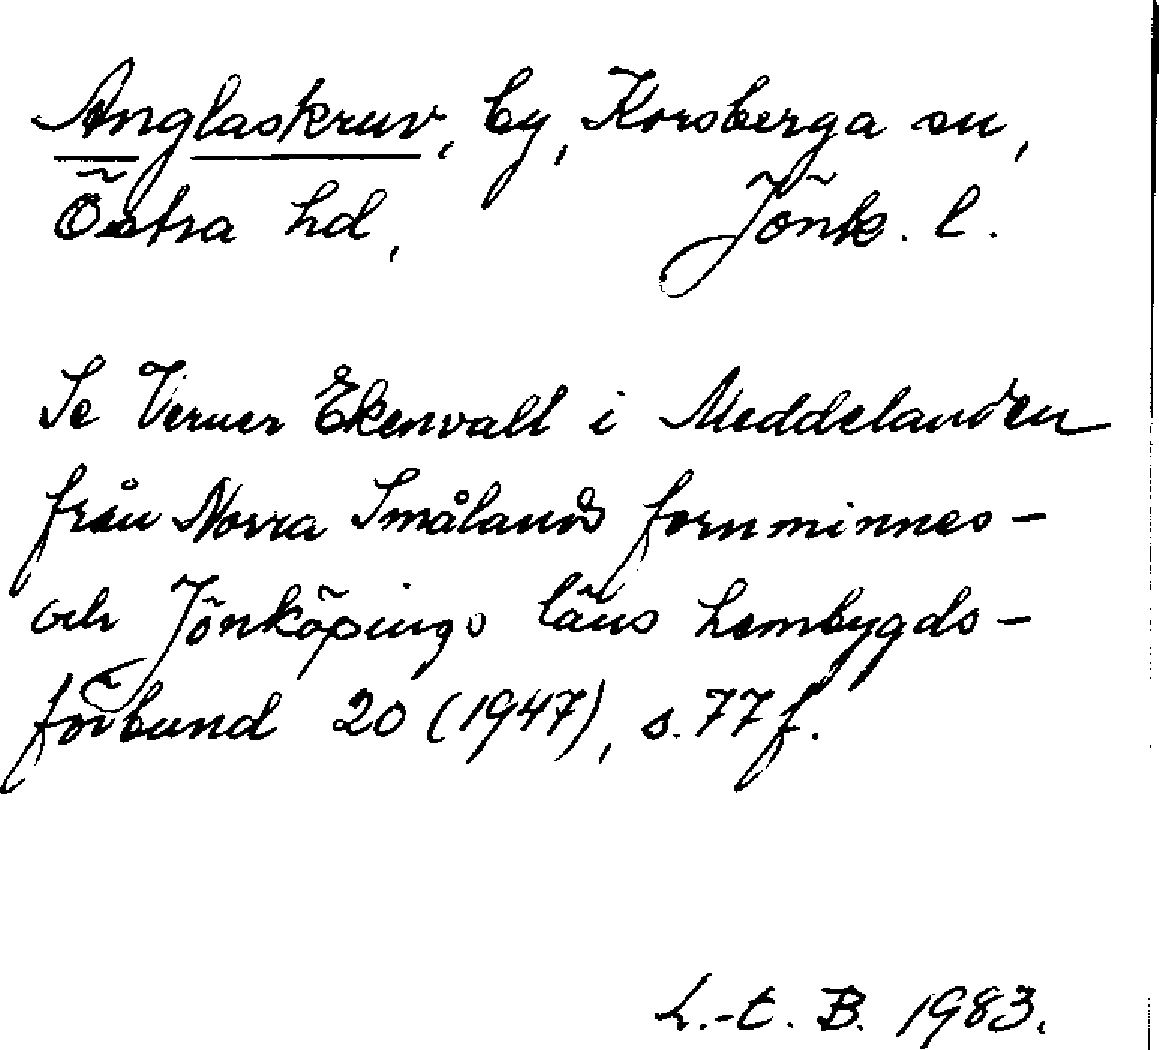 Anglaskruv, by, Korsberga sn,
Östra hd, Jönk. l.
Se Verner Ekenvall i Meddelanden
från Norra Smålands fornminnes-
och Jönköpings läns hembygds-
förbund 20 (1947), s. 77 f.
L.-E. B. 1983.